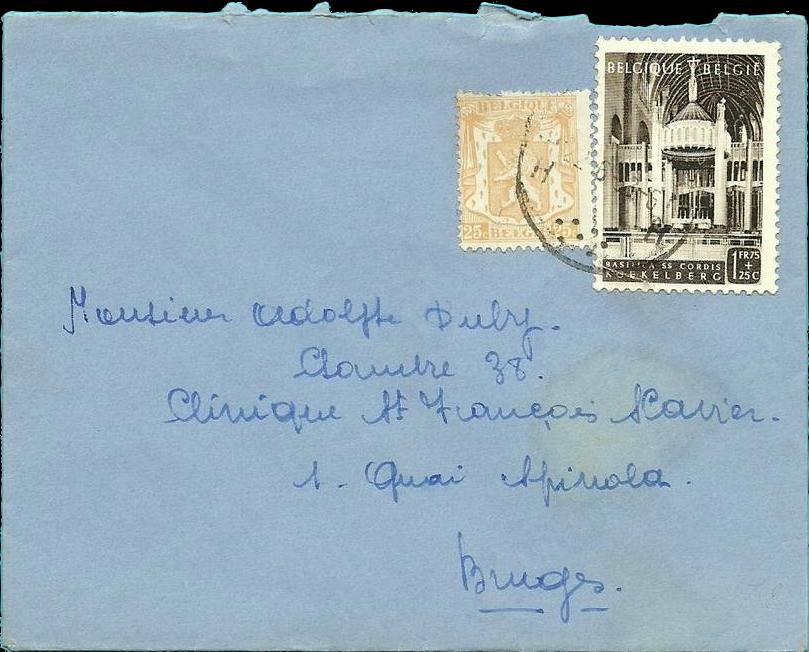 BELGIQUE BELGIË
BELGIQUE
25c BELGIË 25c
BASILICA SS CORDIS
KOEKELBERG
1 FR75
+
25C
Monsieur Adolphe
Chambre 38.
Clinique St François Xavier.
1. Quai Spinola.
Bruges.